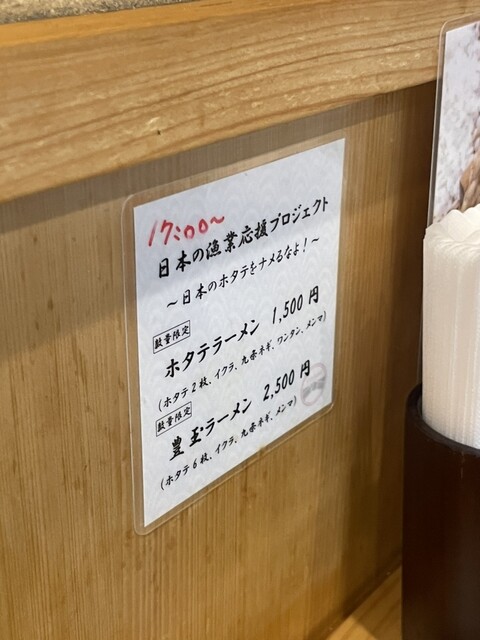 17:00～
日本の漁業応援プロジェクト
～日本のホタテをナメるなよ！～
数量限定
ホタテラーメン 1,500 円
(ホタテ2枚、イクラ、九条ネギ、ワンタン、メンマ)
数量限定
豊玉ラーメン 2,500 円
(ホタテ6枚、イクラ、九条ネギ、メンマ)